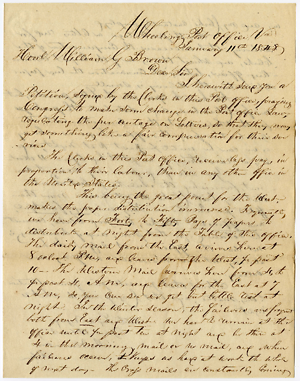 Wheeling, Post Office Va
January 11th 1848
Honl William G Brown
Dear Sir
I herewith send you a
Petition, Signed by the Clerks in this Post Office, praying
Congress to make some change in the Post Office Law,
regulating the per centage on Letters, so that they may
get something like a fair compensation for their ser
vices.
The Clerks in this Post Office, receive less pay, in
proportion to their labour, than in any other office in
the United States.
This being the great point for the West
makes the paper distribution
we have from Forty to Fifty Bags of papers to
distribute at night from the Table of the office.
The daily mail from the East, arrives here at
8 oclock P.M. and leaves from the West, ½ past
10 The Western Mail arrives here from 4 ½
past 5 A.M., and leaves for the East at 7
A.M. So you can see we get but little rest at
night. In the Winter season, the failures are frequent
both from East and West. We have to remain at the
office until ½ past ten at night and be there at
4 in the morning, mail or no mail, and when
failures occur, keeps us at work the whole
of next day. The Cross Mails are constantly coming